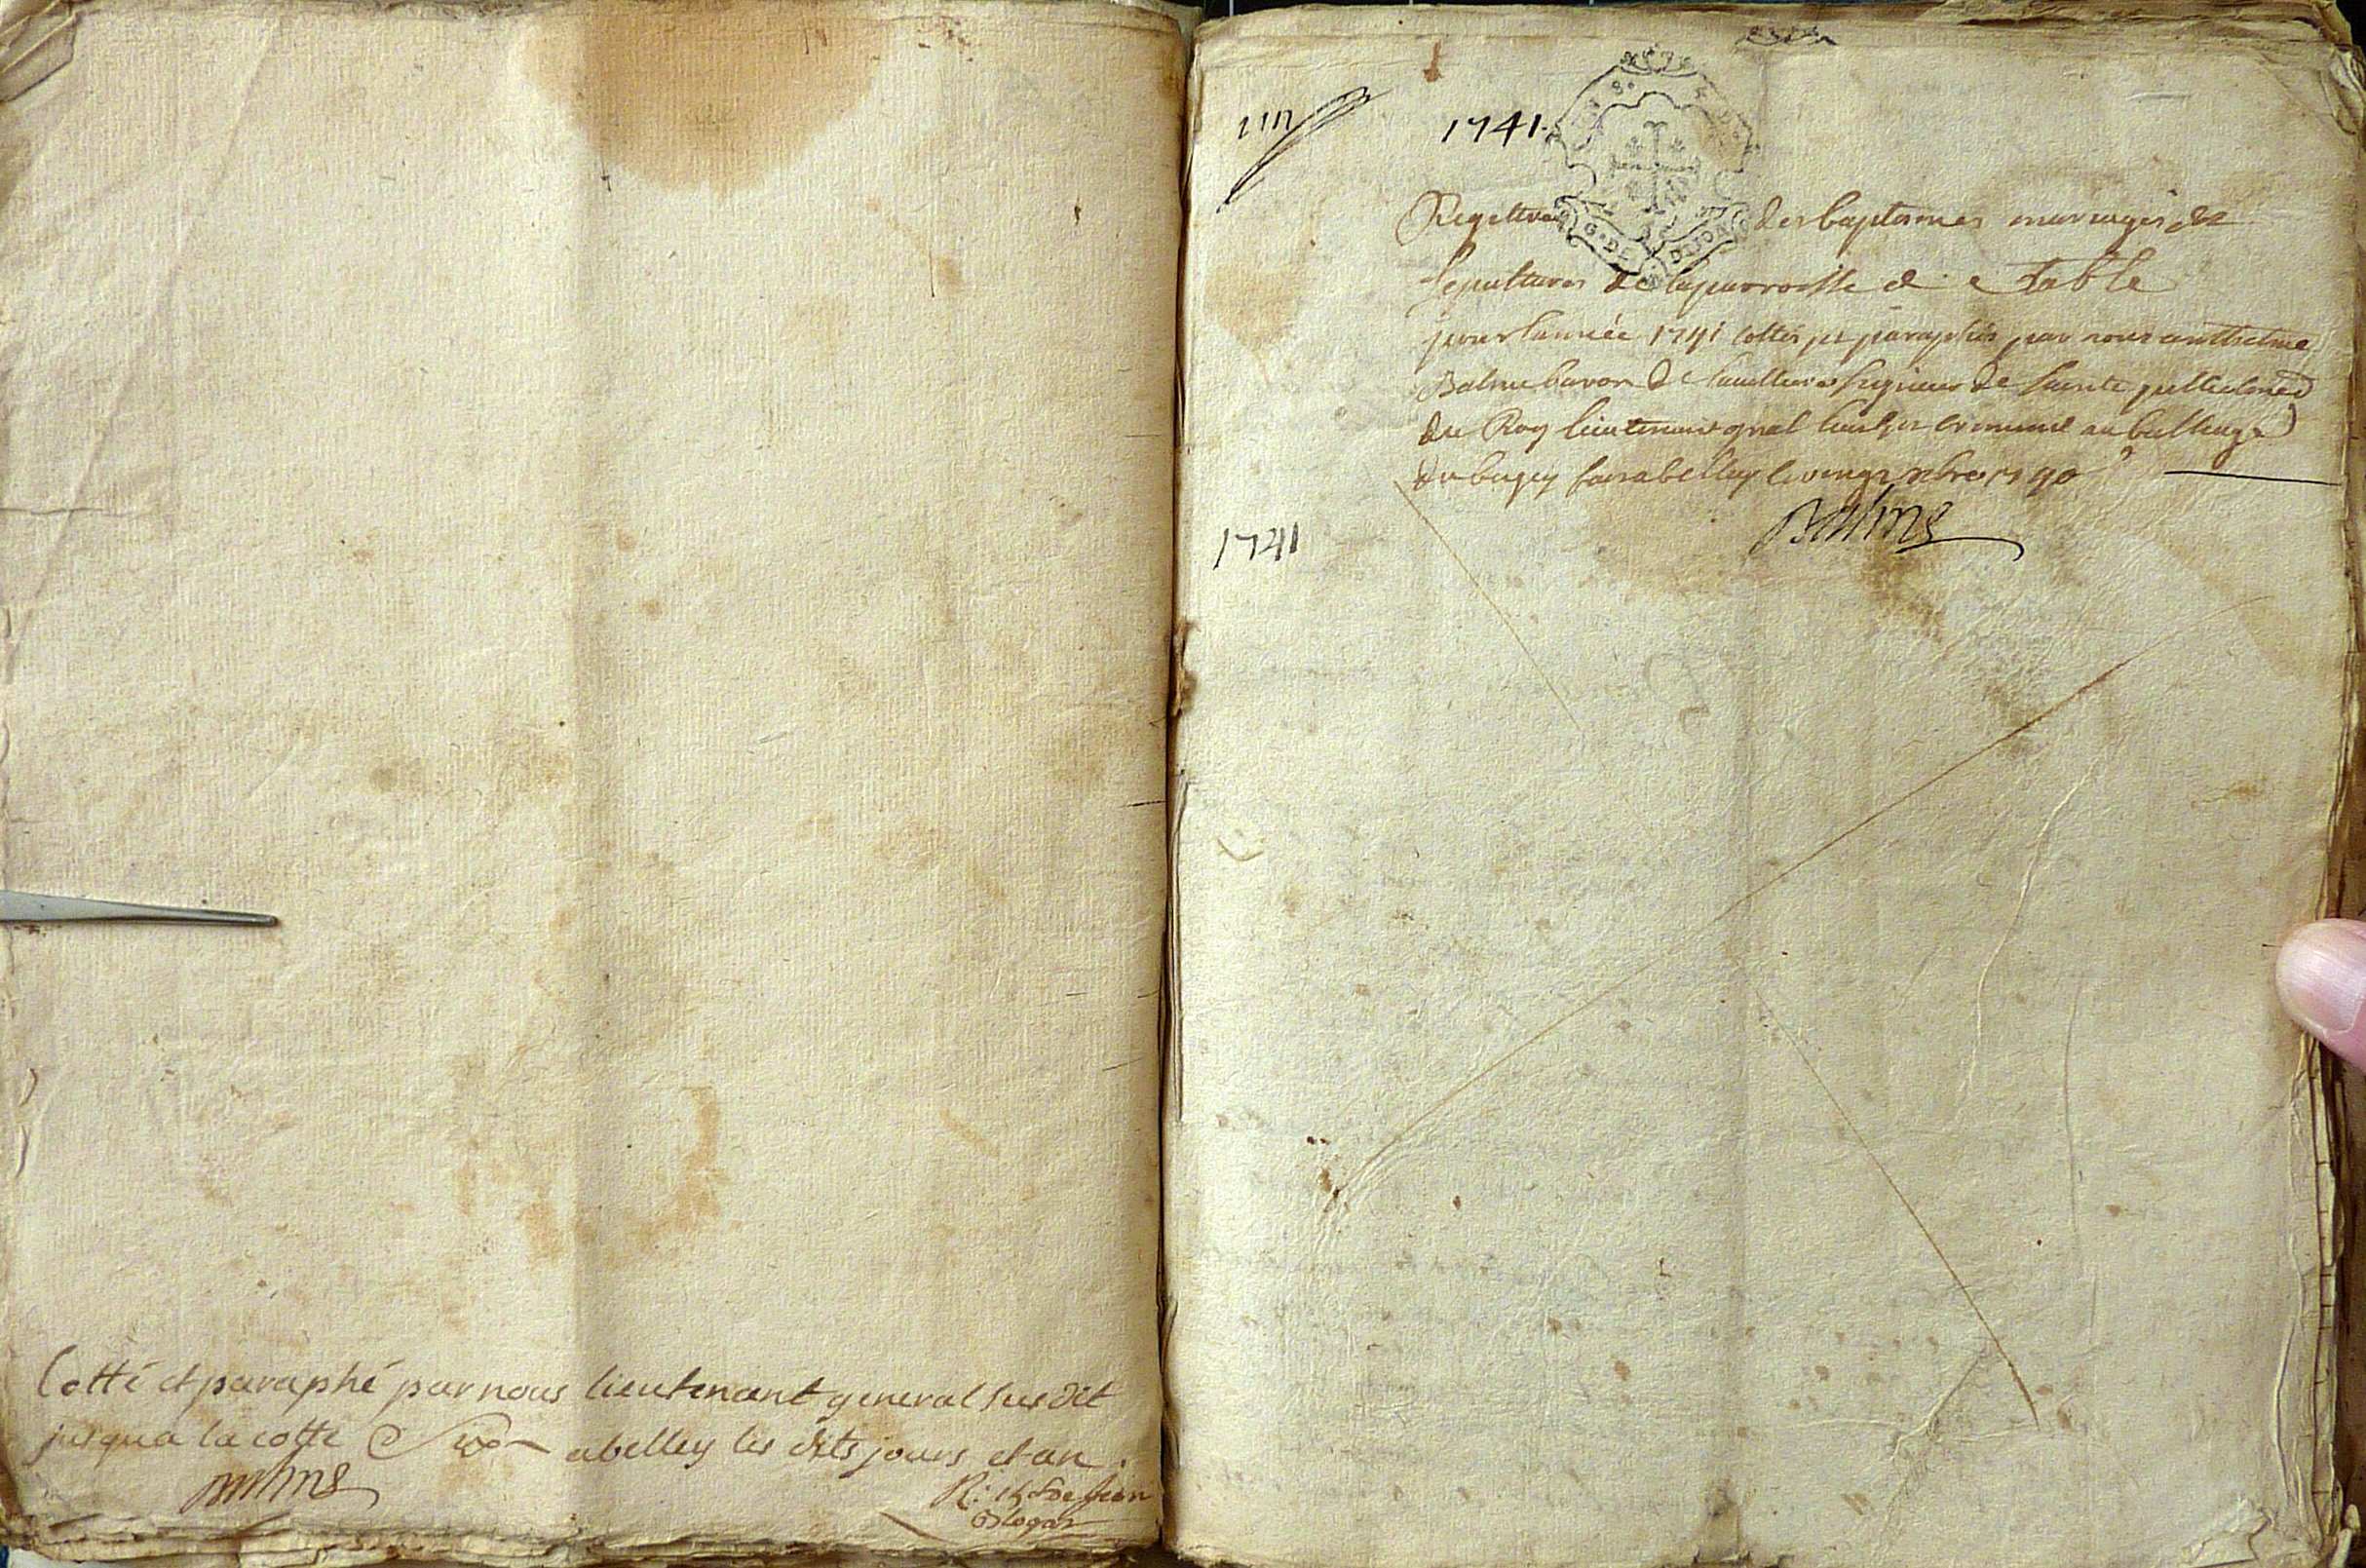 Cotté et paraphé par nous lieutenant general susdit
jusqua la cotte abelley les dits jours et an.
Balme
1741.
Registre des baptesmes mariages et
sepultures de la parroisse de table
pour lannée 1741 cottés et paraphés par nous anthelme
Balme baron de seigneur de sainte
du Roy lieutenant gnal et criminel au balliage
du bugey fait a belley le vingt xbre 1740
Balme
1741